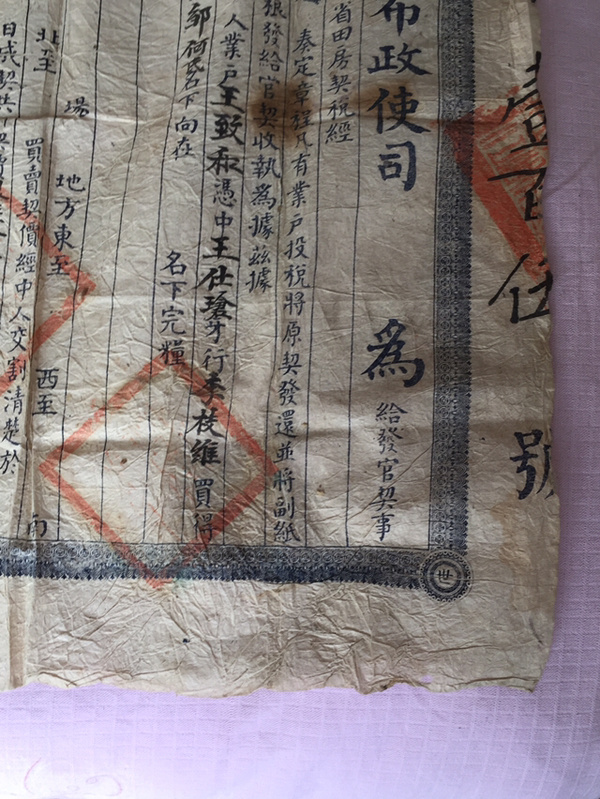 壹百伍
號
布政使司
為
給發官契事
省田房契稅經
奏定章程凡有業戶投稅將原契發還並將副紙
根發給官契收執為據茲據
人業戶王致和憑中王仕瑲牙行李枝維買得
鄒何氏名下向在
名下完糧
場
地方東至
西至
南
北至
買賣契價經中人交割清楚於
日成契共